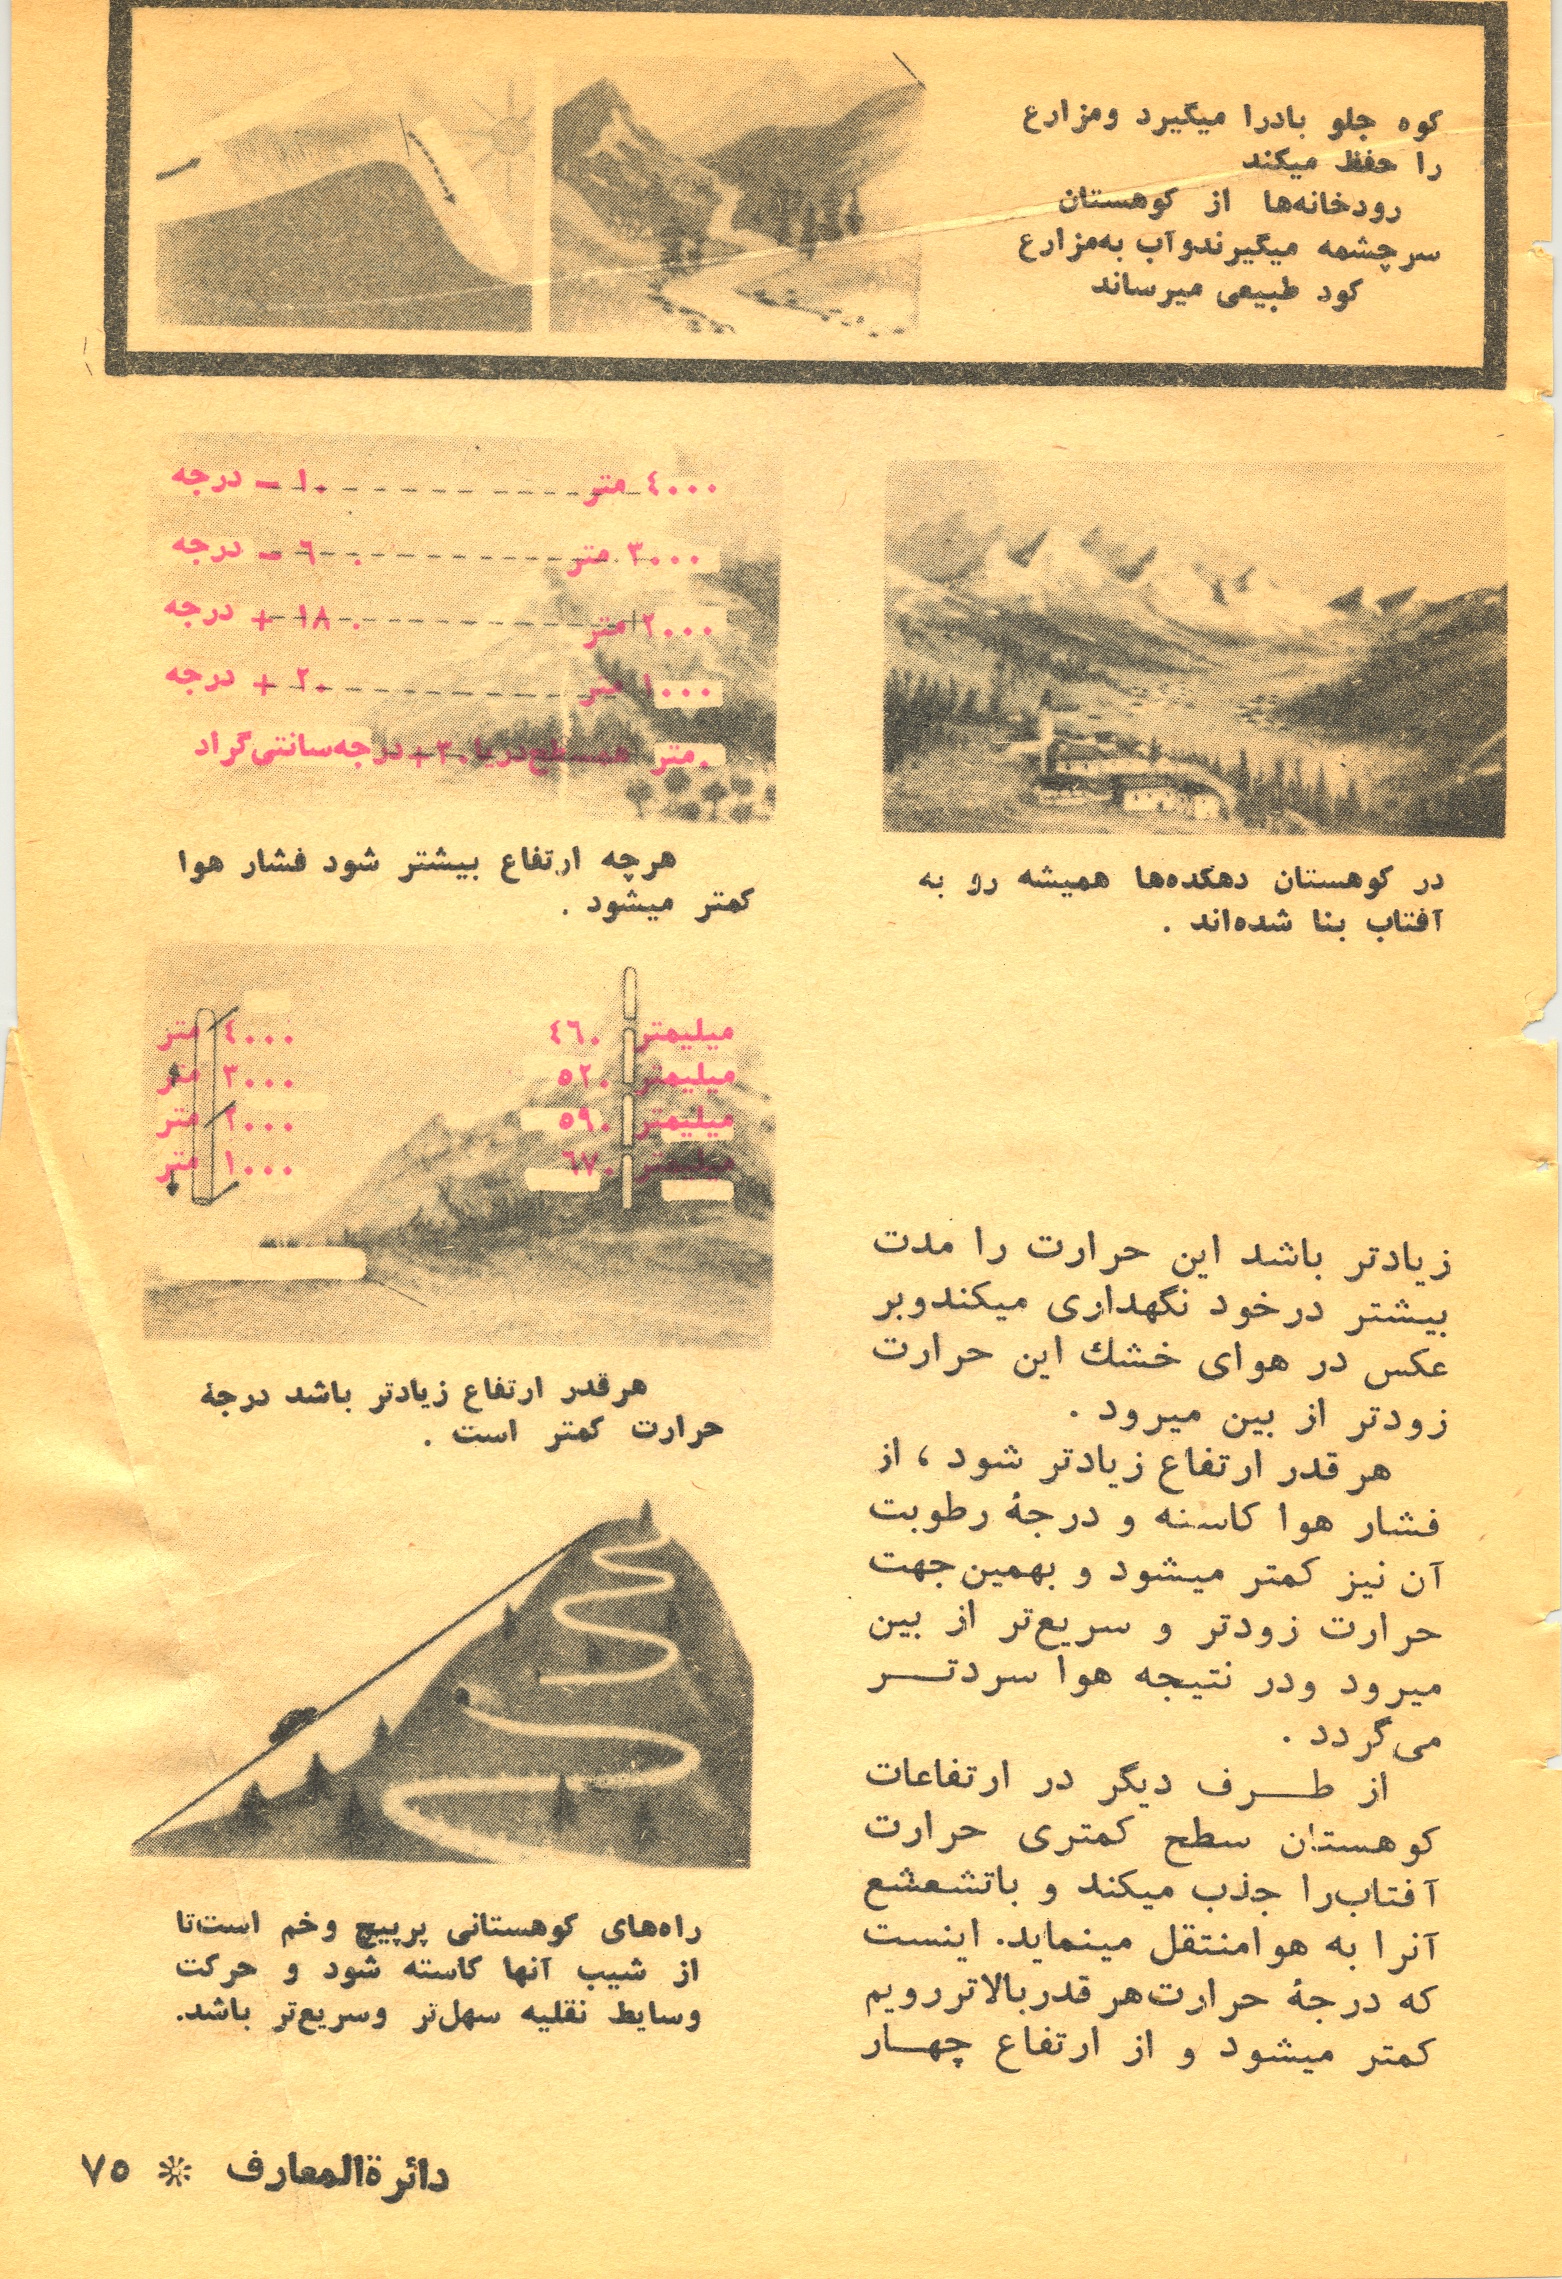 کوه جلو بادرا میگیرد ومزارع
را حفظ میکند
رودخانه‌ها از کوهستان
سرچشمه میگیرندوآب به‌مزارع
کود طبیعی میرساند
در کوهستان دهکده‌ها همیشه رو به
آفتاب بنا شده‌اند .
زیادتر باشد این حرارت را مدت
بیشتر درخود نگهداری میکندوبر
عکس در هوای خشك این حرارت
زودتر از بین میرود .
هر قدر ارتفاع زیادتر شود ، از
فشار هوا کاسته و درجهٔ رطوبت
آن نیز کمتر میشود و بهمین‌جهت
حرارت زودتر و سریع‌تر از بین
میرود ودر نتیجه هوا سردتـــر
می‌گردد .
از طـــرف دیگر در ارتفاعات
کوهستان سطح کمتری حرارت
آفتاب‌را جذب میکند و باتشعشع
آنرا به هوامنتقل مینماید. اینست
که درجهٔ حرارت‌هر قدربالاتررویم
کمتر میشود و از ارتفاع چهــار
٤٠٠٠ متر ١٠ – درجه
٣٠٠٠ متر ٦٠ – درجه
٢٠٠٠ متر ١٨٠ + درجه
١٠٠٠ متر ٢٠ + درجه
٠متر همسطح‌دریا ٣٠+درجه‌سانتی‌گراد
هرچه ارتفاع بیشتر شود فشار هوا
کمتر میشود .
میلیمتر ٤٦٠ ٤٠٠٠ متر
میلیمتر ٥٢٠ ٣٠٠٠ متر
میلیمتر ٥٩٠ ٢٠٠٠ متر
میلیمتر ٦٧٠ ١٠٠٠ متر
هرقدر ارتفاع زیادتر باشد درجهٔ
حرارت کمتر است .
راه‌های کوهستانی پرپیچ وخم است‌تا
از شیب آنها کاسته شود و حرکت
وسایط نقلیه سهل‌تر وسریع‌تر باشد.
دائرةالمعارف * ٧٥